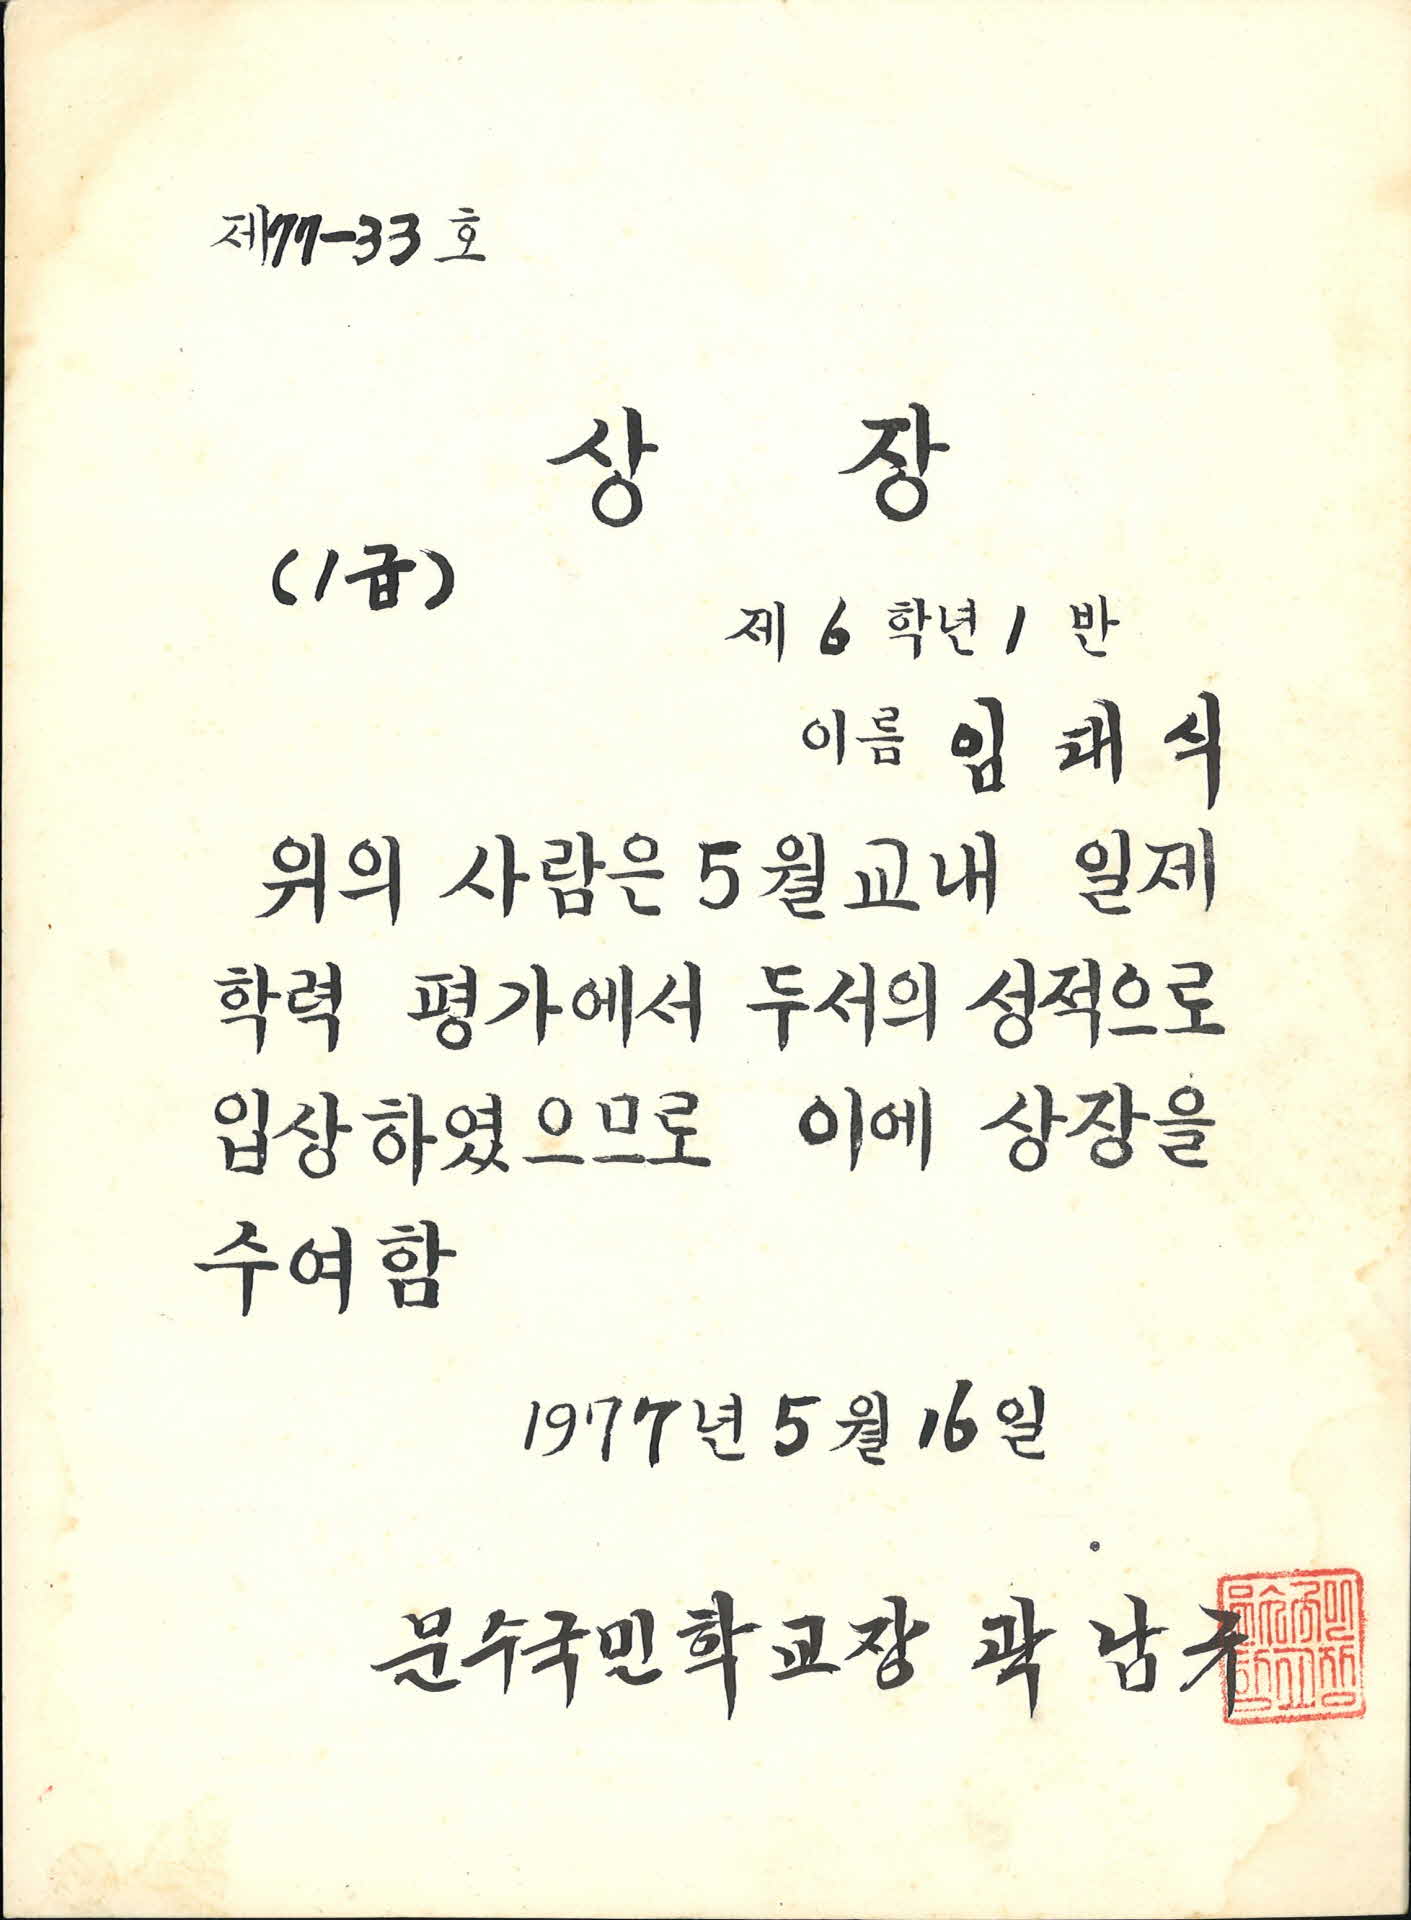 제77-33호
상 장
(1급)
제 6 학년 1 반
이름 임 대 식
위의 사람은 5월 교내 일제
학력 평가에서 두서의 성적으로
입상하였으므로 이에 상장을
수여함
1977년 5월 16일
문수국민학교장 곽 남 규